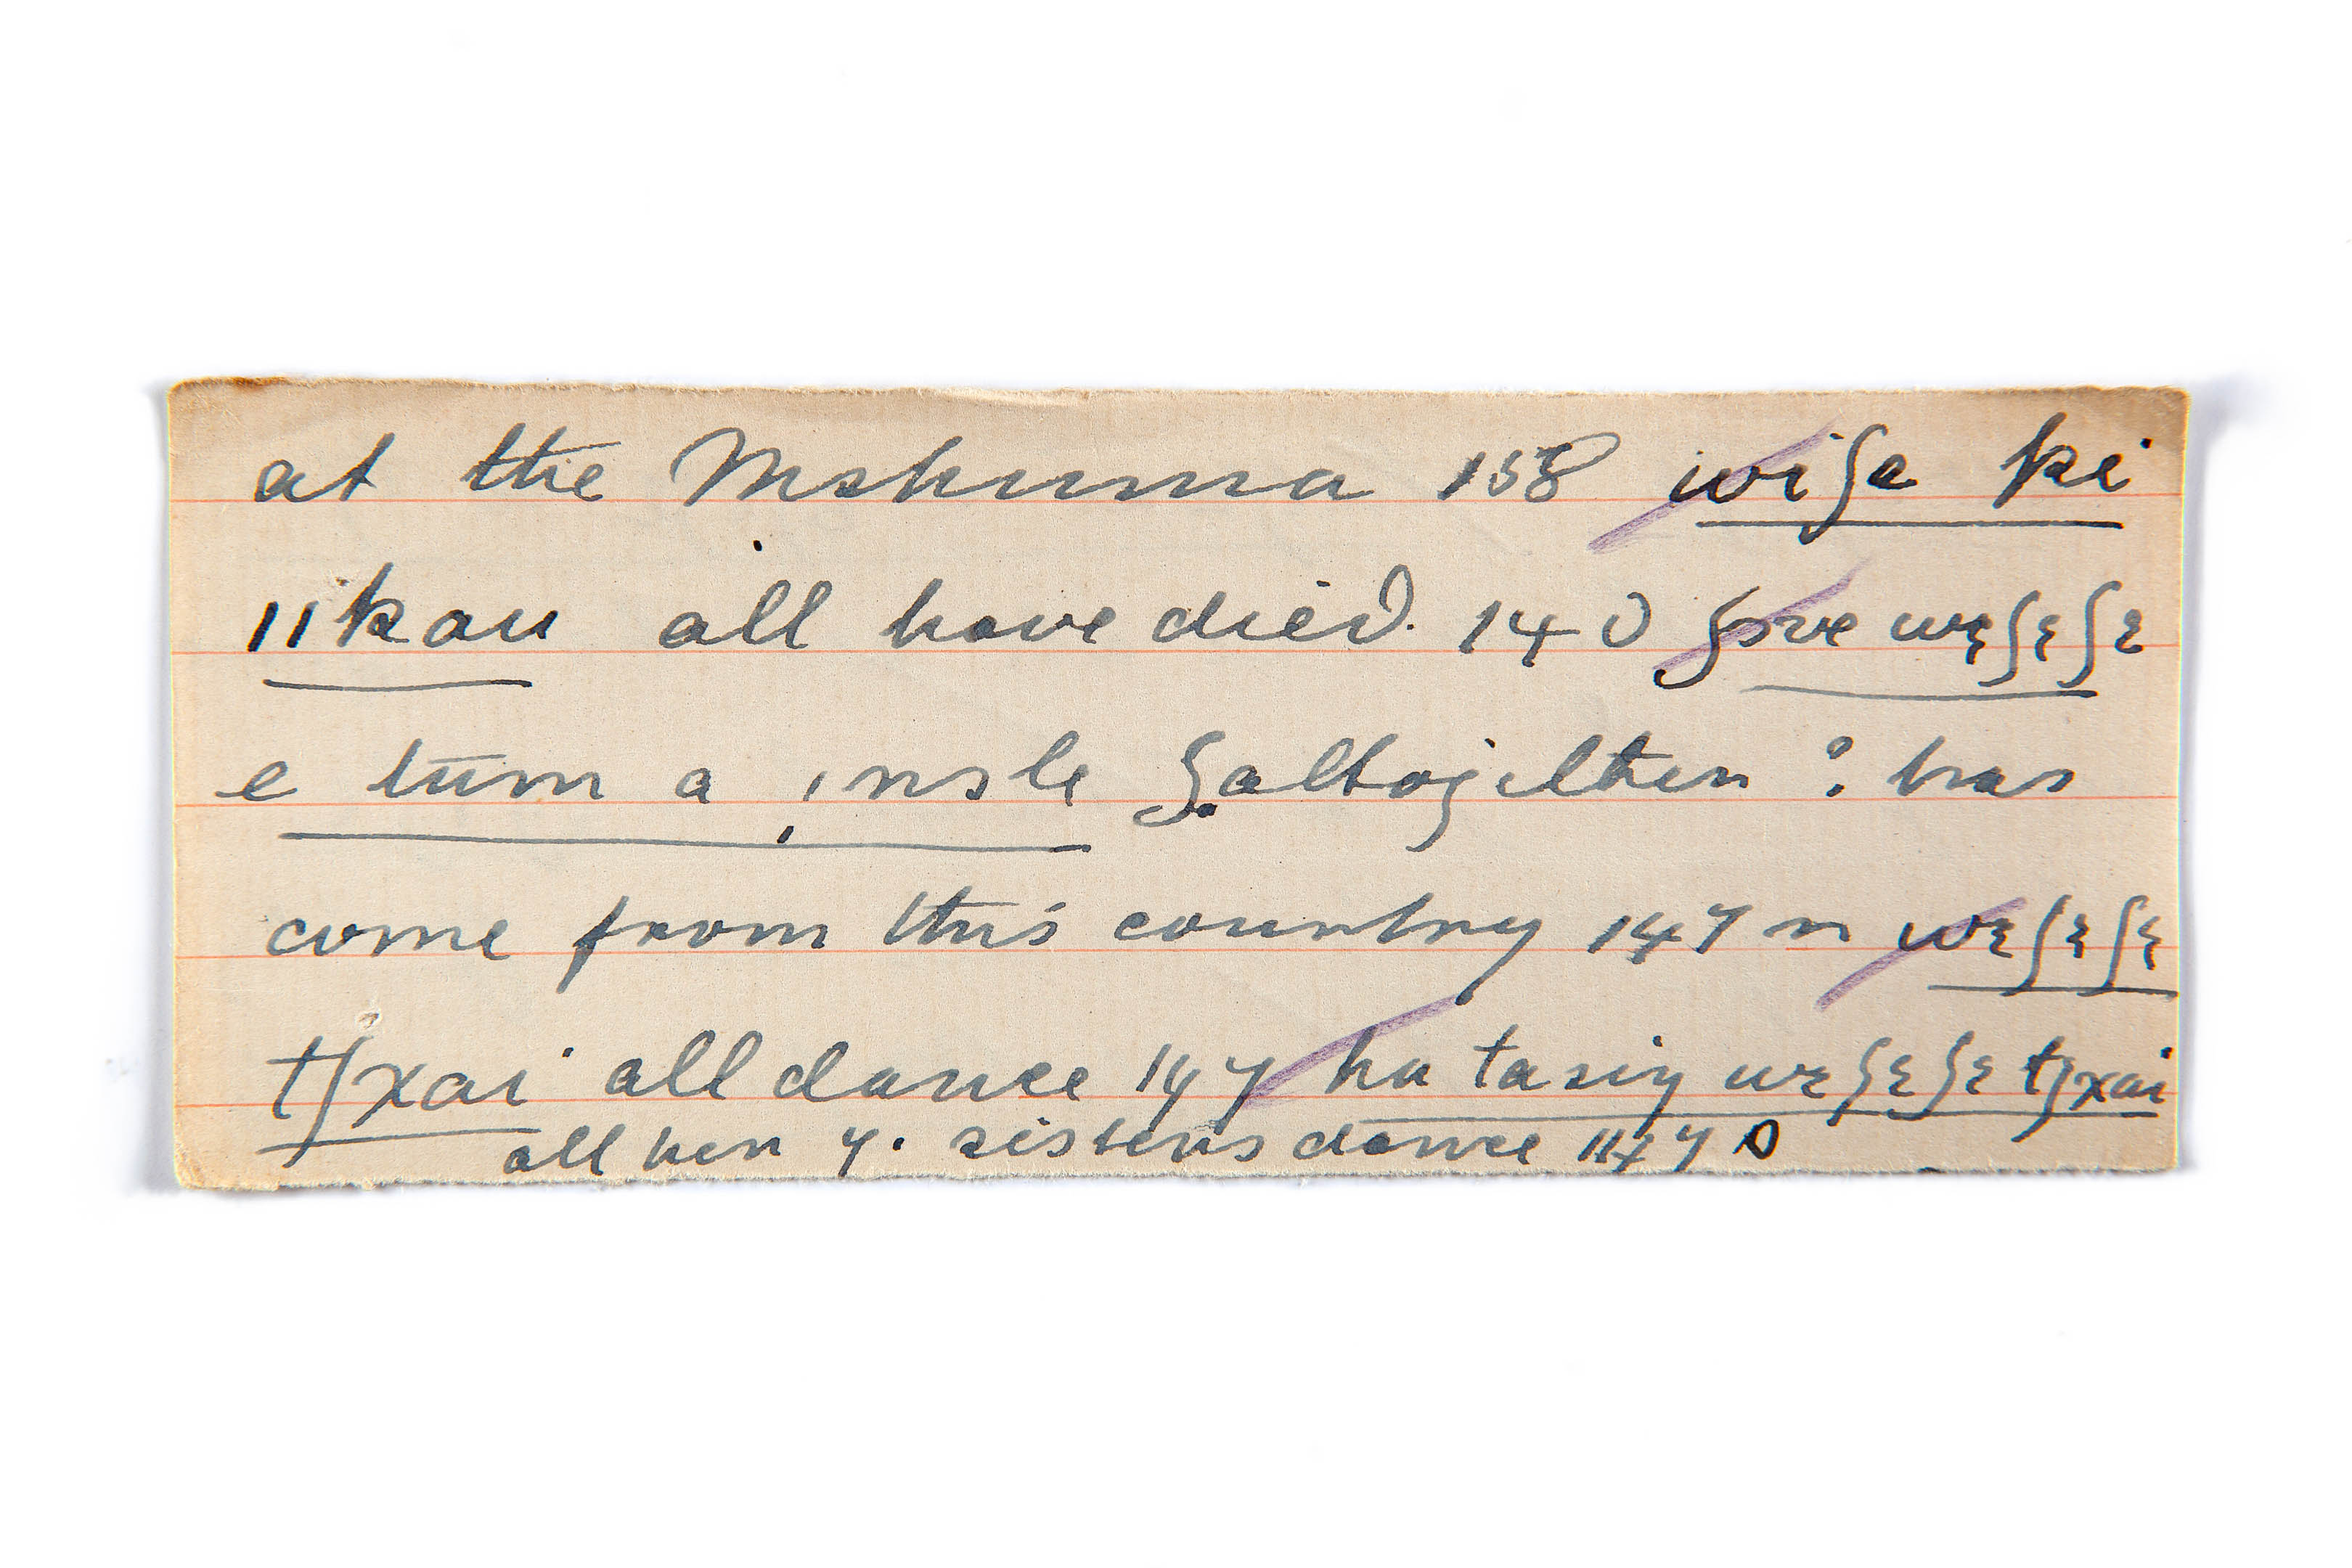 at the Mshuma 158 wiʃe ki
ııkau all have died. 140 ʃove wɛʃɛʃɛ
e tum a ˌnsle ʃaltogelten : has
come from this country 147 n wɛʃɛʃɛ
tʃxai all dance 147 ha tasiŋ wɛʃɛʃɛ tʃxai
all her y. sisters dance 147